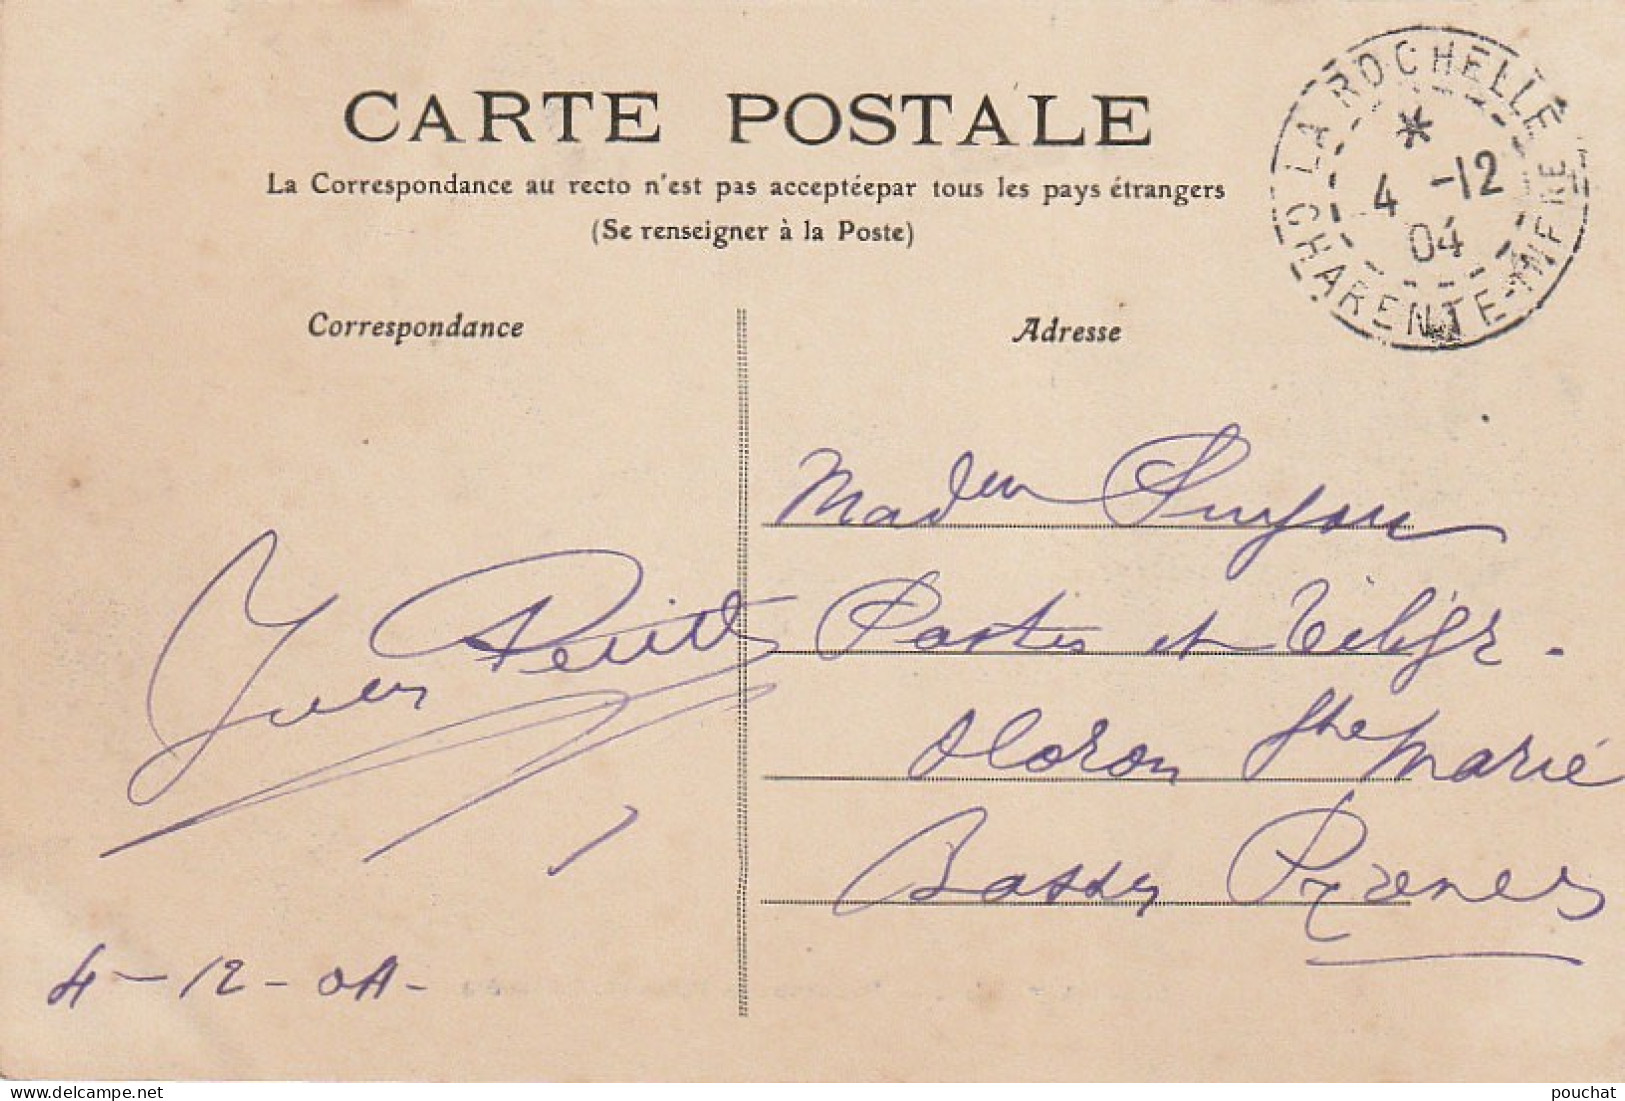 CARTE POSTALE
La Correspondance au recto n'est pas acceptéepar tous les pays étrangers
(Se renseigner à la Poste)
LA ROCHELLE
*
4 -12
04
CHARENTE-INFRE
Correspondance
Adresse
Postes et Télégr.
Oloron Ste Marie
Basses Pyrenees
4-12-04-
www.delcampe.net
pouchat